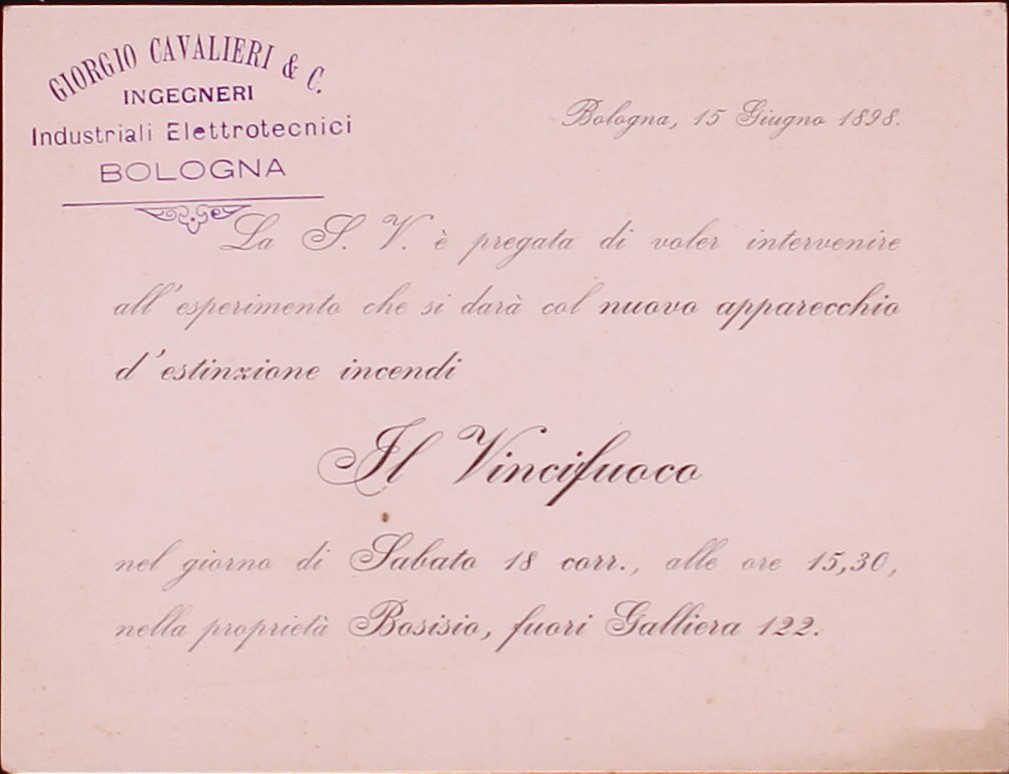 GIORGIO CAVALIERI & C.
INGEGNERI
Industriali Elettrotecnici
BOLOGNA
Bologna, 15 Giugno 1898.
La S. V. è pregata di voler intervenire
all'esperimento che si darà col nuovo apparecchio
d'estinzione incendi
Il Vincifuoco
nel giorno di Sabato 18 corr., alle ore 15,30,
nella proprietà Bosisio, fuori Galliera 122.